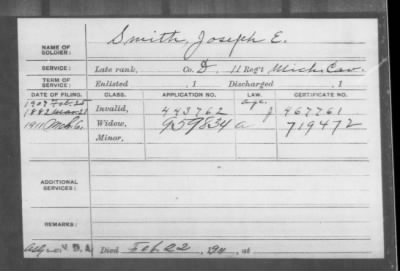 NAME OF SOLDIER: Smith, Joseph E.
SERVICE: Late rank, Co. D, 11 Reg't Mich. Cav.
TERM OF SERVICE: Enlisted , 1 Discharged , 1
DATE OF FILING. CLASS. APPLICATION NO. LAW. CERTIFICATE NO.
1907 Feb. 25 age.
1892 Invalid, 443762 j 467761
1911 Widow, 959834 a 719472
Minor,
ADDITIONAL SERVICES:
REMARKS:
Died Feb 22, 1911, at